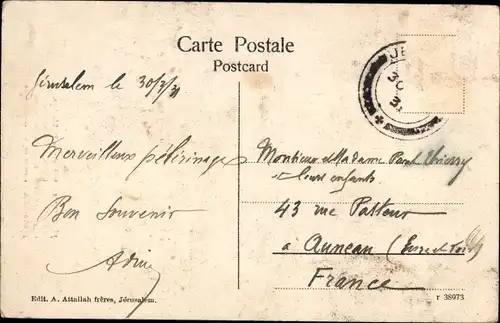 Carte Postale
Postcard
JE
30
31
Jérusalem le 30/7/31
Merveilleux pélérinage
Bon Souvenir
Monsieur et Madame Paul Thierry
et leurs enfants
43 rue Pasteur
à Auneau (Eure et Loir)
France
Edit. A. Attallah frères, Jérusalem.
r 38973